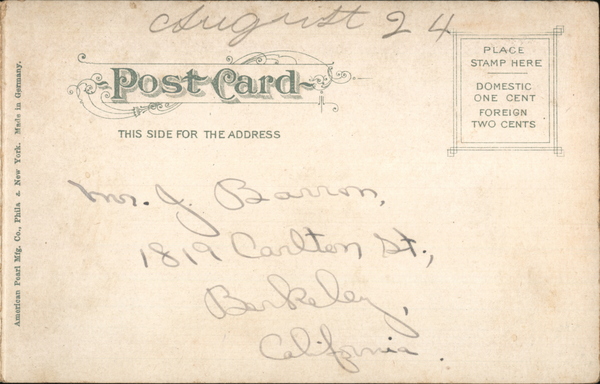 August 24
Post Card
THIS SIDE FOR THE ADDRESS
PLACE
STAMP HERE
DOMESTIC
ONE CENT
FOREIGN
TWO CENTS
American Pearl Mfg. Co., Phila & New York. Made in Germany.
Mr. J. Barron,
1819 Carlton St.,
Berkeley,
California.